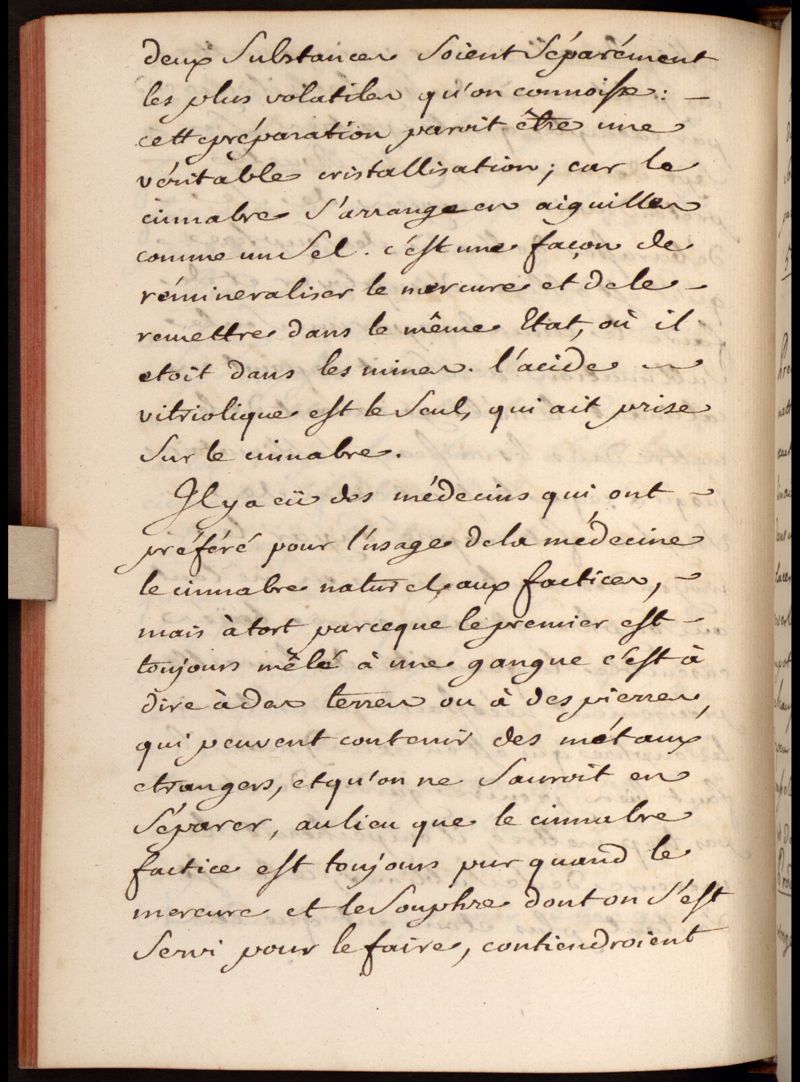 deux Substances Soient Séparément
les plus volatiles qu'on connoisse : -
cette préparation paroit être une
véritable cristallisation; car le
cinnabre s'arrange en aiguilles
comme un Sel. c'est une façon de
rémineraliser le mercure et de le -
remettre dans le même Etat, où il
etoit dans les mines. l'acide -
vitriolique est le Seul, qui ait prise
Sur le cinnabre.
Il y a eü des médecins qui ont -
préféré pour l'usage de la médecine
le cinnabre naturel, aux factices, -
mais à tort parceque le premier est -
toujours mêlé à une gangue c'est à
dire à des terres ou à des pierres,
qui peuvent contenir des métaux
etrangers, et qu'on ne Sauroit en
Séparer, au lieu que le cinnabre
factice est toujours pur quand le
mercure et le Souphre dont on S'est
Servi pour le faire, contiendroient